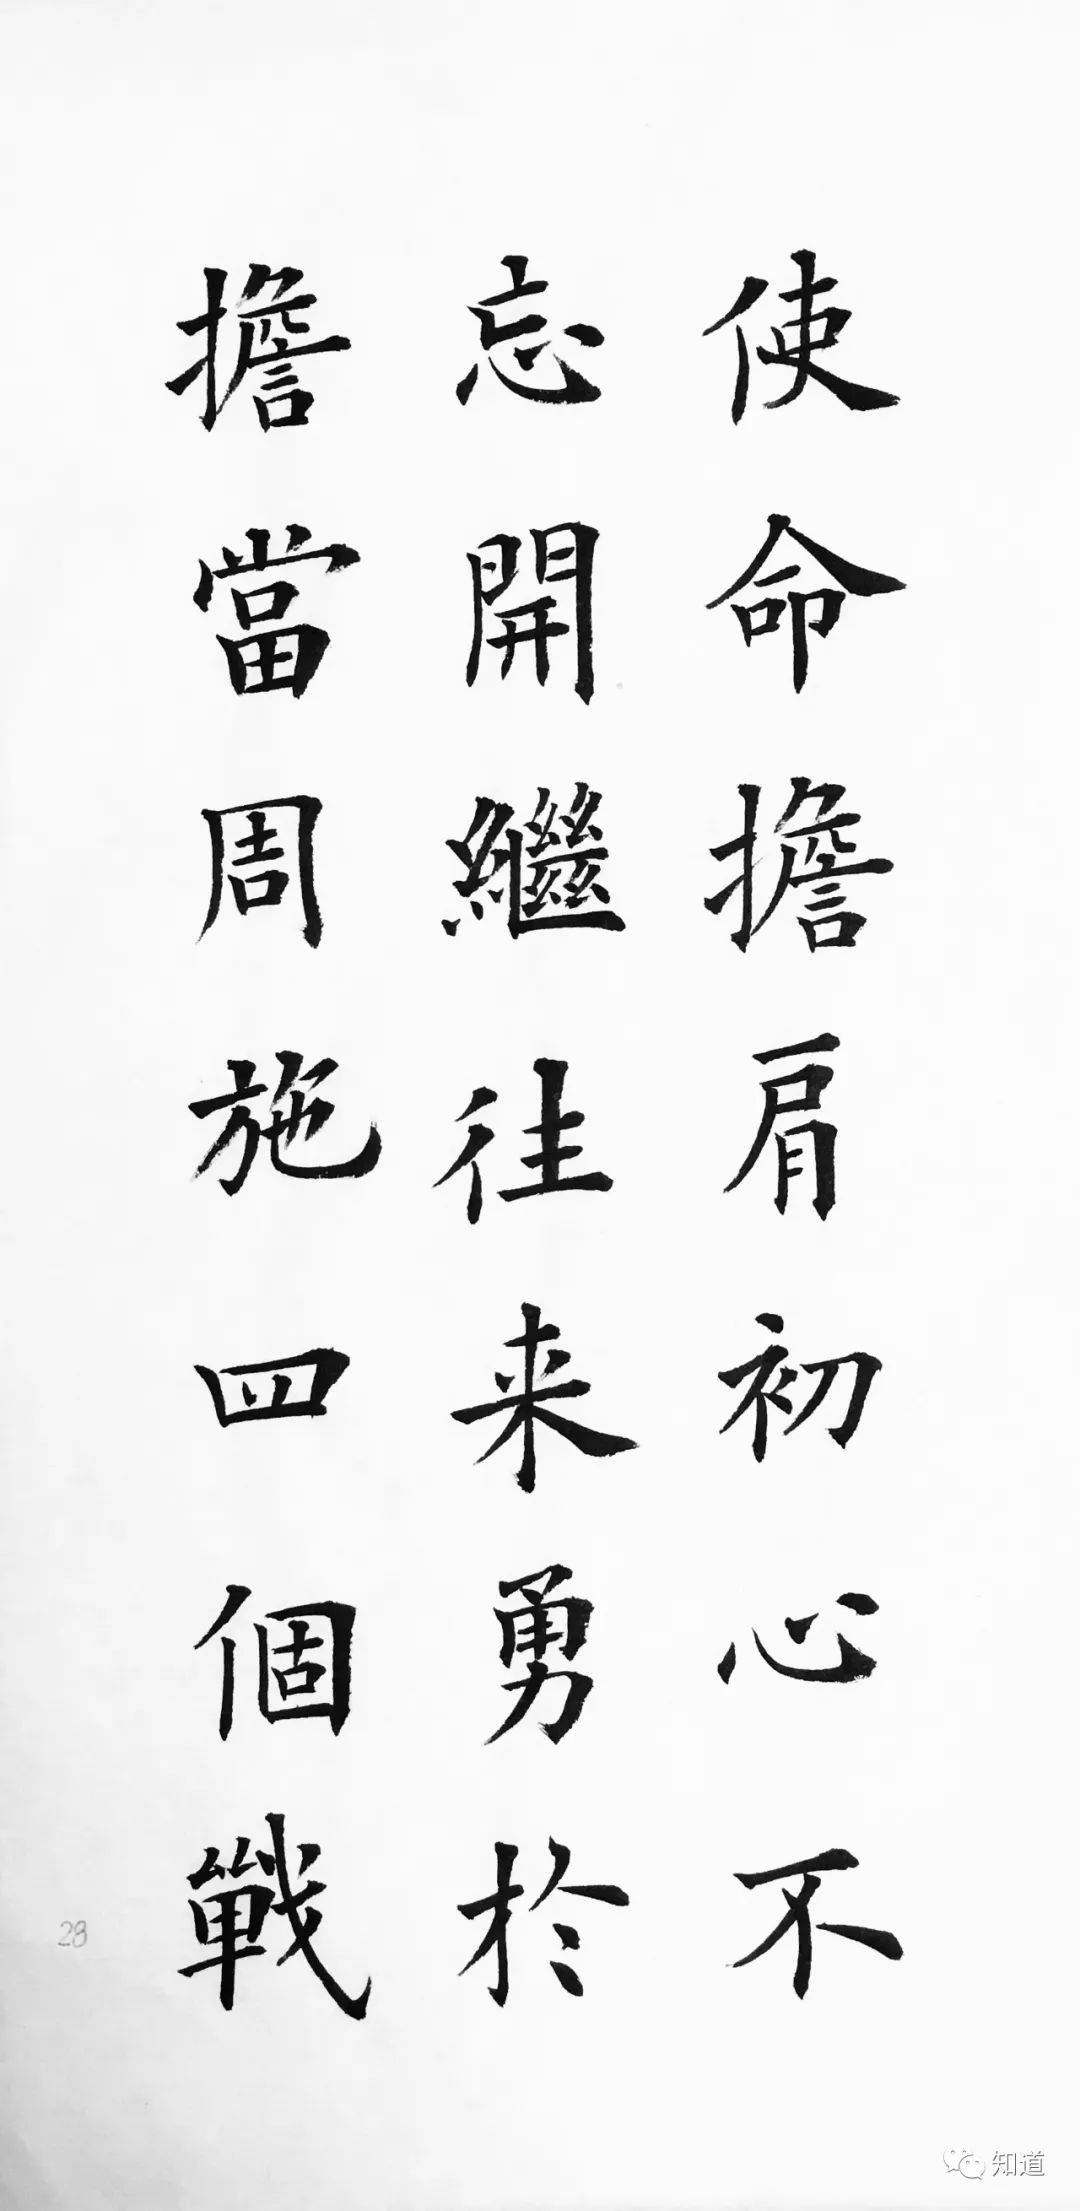 使命擔肩初心不
忘開繼往来勇於
擔當周施四個戰
28
知道